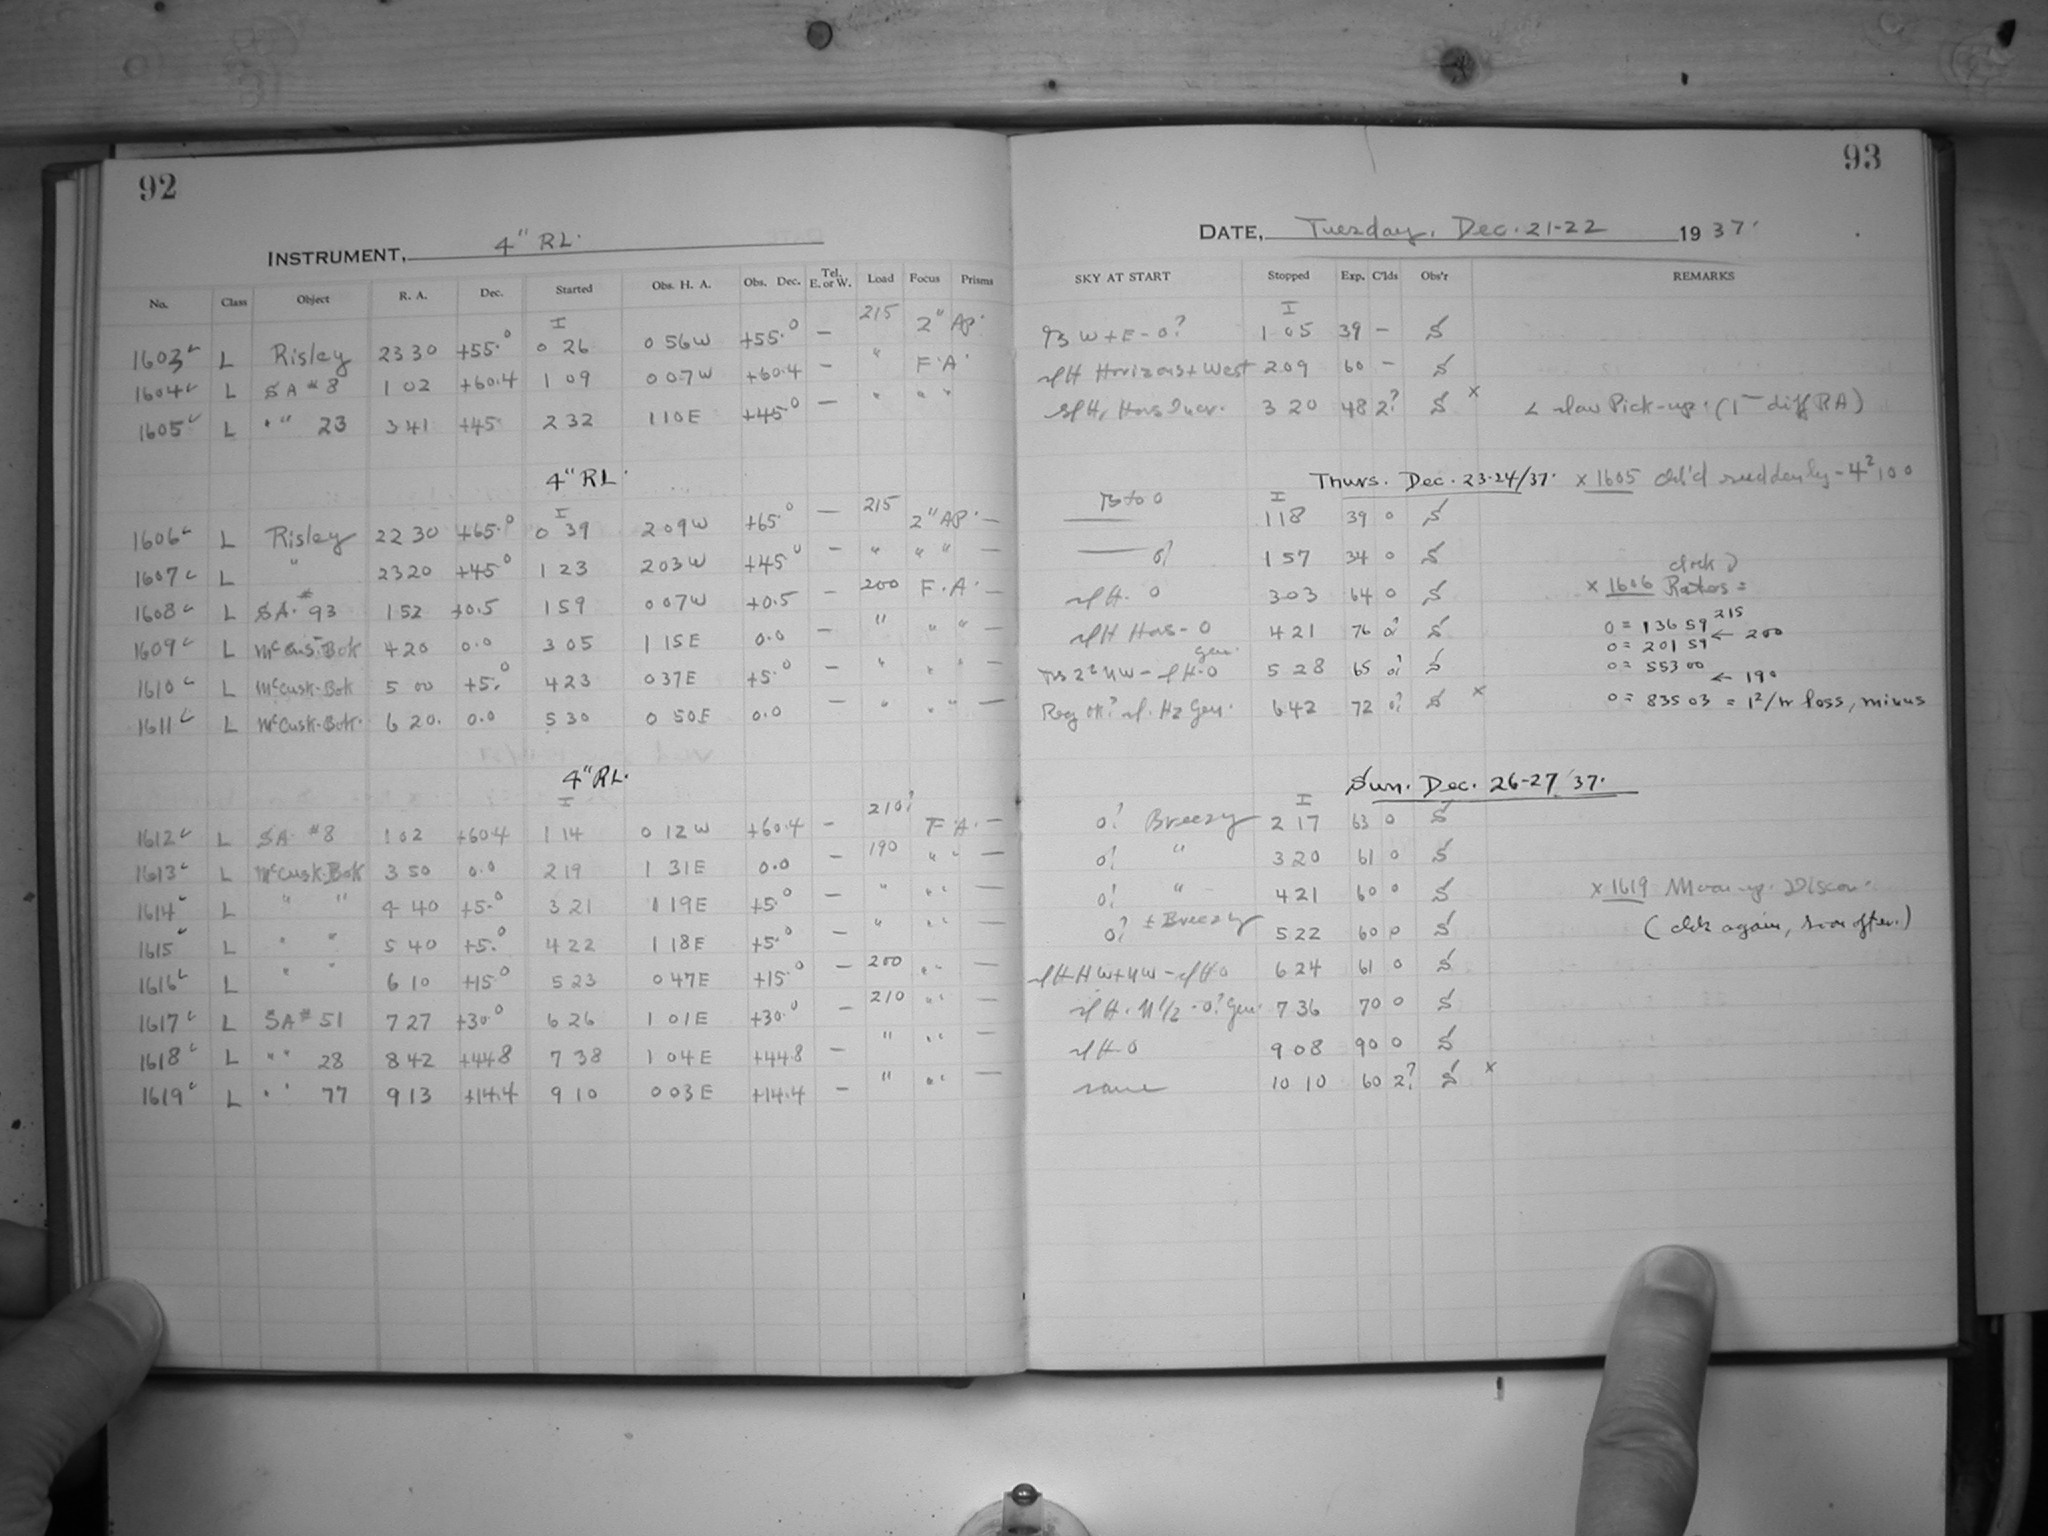 92
INSTRUMENT, 4" RL.
No. Class Object R. A. Dec. Started Obs. H. A. Obs. Dec. Tel. E. or W. Load Focus Prisms
1603 L Risley 23 30 +55.0 0 26 0 56W +55.0 — 215 2" AP.
1604 L SA #8 1 02 +60.4 1 09 0 07W +60.4 — " F.A.
1605 L " " 23 3 41 +45 2 32 1 10E +45.0 — " " "
4" RL.
1606 L Risley 22 30 +65.0 0 39 2 09W +65.0 — 215 2" AP. —
1607 L " 23 20 +45.0 1 23 2 03W +45.0 — " " " —
1608 L SA. #93 1 52 +0.5 1 59 0 07W +0.5 — 200 F.A. —
1609 L McCus-Bok 4 20 0.0 3 05 1 15E 0.0 — " " " —
1610 L McCusk-Bok 5 00 +5.0 4 23 0 37E +5.0 — " " " —
1611 L McCusk-Bok. 6 20. 0.0 5 30 0 50E 0.0 — " " " —
4" RL.
1612 L SA. #8 1 02 +60.4 1 14 0 12W +60.4 — 210? F.A. —
1613 L McCusk-Bok 3 50 0.0 2 19 1 31E 0.0 — 190 " " —
1614 L " " 4 40 +5.0 3 21 1 19E +5.0 — " " " —
1615 L " " 5 40 +5.0 4 22 1 18E +5.0 — " " " —
1616 L " " 6 10 +15.0 5 23 0 47E +15.0 — 200 " " —
1617 L SA #51 7 27 +30.0 6 26 1 01E +30.0 — 210 " " —
1618 L " " 28 8 42 +44.8 7 38 1 04E +44.8 — " " " —
1619 L " " 77 9 13 +14.4 9 10 0 03E +14.4 — " " " —
93
DATE, Tuesday, Dec. 21-22 1937.
SKY AT START Stopped Exp. C'lds Obs'r REMARKS
W+E-0? 1 05 39 — S
Horizons+West 2 09 60 — S
3 20 48 2? S x Pick-up. (1m diff RA)
Thurs. Dec. 23-24/37. x 1605 cld'd suddenly-
to 0 1 18 39 0 S
0? 1 57 34 0 S
slH. 0 3 03 64 0 S x 1606 Rates=
slH Hors-0 4 21 76 0? S 0 = 136 59 215
0 = 201 59 ← 200
gen. 5 28 65 0? S 0 = 553 00
← 190
Gen. 6 42 72 0? S x 0 = 835 03 = 1s/hr loss, minus
Sun. Dec. 26-27/37.
0? Breezy 2 17 63 0 S
0? " 3 20 61 0 S
0? " 4 21 60 0 S x 1619 Moon-up. Discon.
0? ± Breezy 5 22 60 0 S (cldr again, soon after.)
6 24 61 0 S
slH. N1/2 -0? Gen. 7 36 70 0 S
slH-0 9 08 90 0 S
same 10 10 60 2? S x